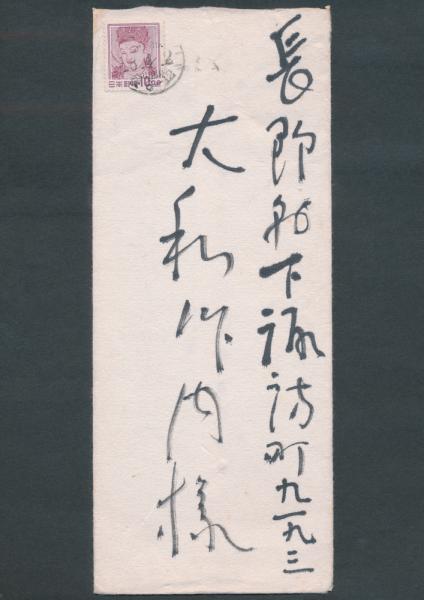 長野縣下諏訪町九一九三
大和作内様
日本郵便 10.00